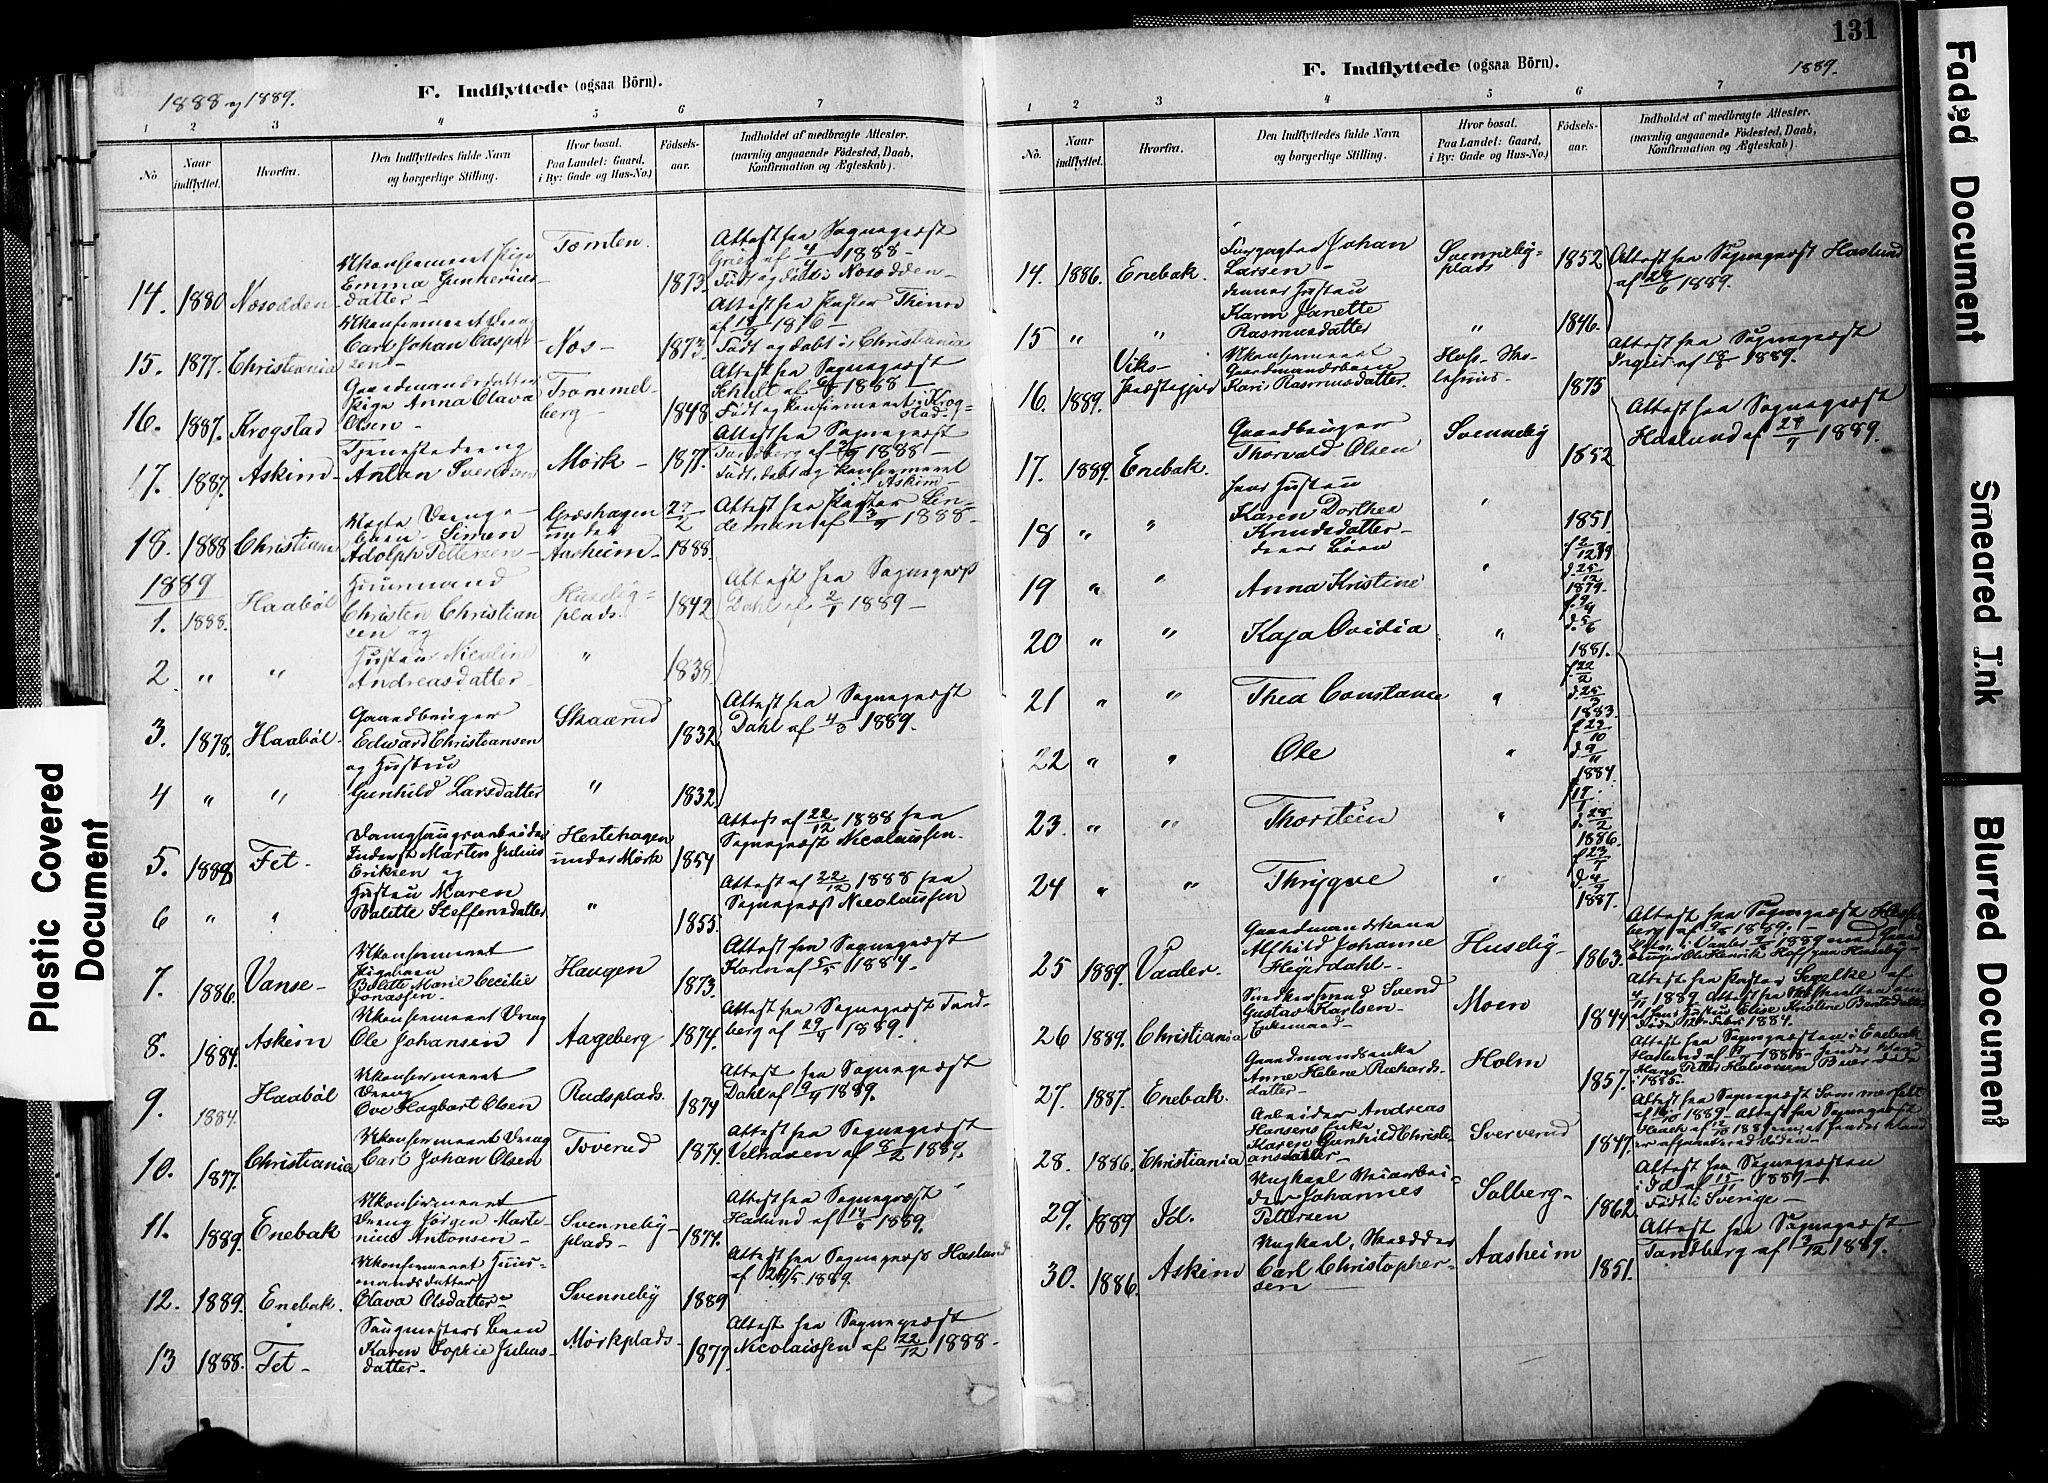 1888 og 1889.
F. Indflyttede (ogsaa Börn).
1 2 3 4 5 6 7
No
Naar indflyttet.
Hvorfra.
Den Indflyttedes fulde Navn og borgerlige Stilling.
Hvor bosat.
Paa Landet: Gaard,
i By: Gade og Hus-No.)
Födsels-aar.
Indholdet af medbragte Attester.
(navnlig angaaende Födested, Daab,
Konfirmation og Ægteskab).
14. 1880 Næsodden
Ukonfirmeret Pige
Emma Gunnerius-
datter
Tomten 1873.
Attest fra Sogneprest
Grieg af 4/4 1888
Født og døbt i Næsodden
15. 1877. Christiania
Ukonfirmeret Dreng
Carl Johan Casper-
sen
Næs 1873.
Attest fra Pastor
Født og døbt i Christiania
16. 1887. Krogstad
Gaardmandsdatter
Pige Anna Olava
Olsen
Trommel-
berg 1848
Attest fra Sogneprest
Schult af 1888
Født og konfirmeret i Krog-
stad
17. 1887. Askim
Tjenestedreng
Anton Svendsen
Mørk 1871.
Attest fra Sogneprest
Tandberg af 1888
Født, døbt og konfirmeret
i Askim
18. 1888 Christiania
Simen
Adolph Pettersen
Græshagen
under
Aasheim
27/2 1888
Attest fra Pastor Lin-
deman af 3/9 1888
1889
1. 1888. Haabøl
Huusmand
Christen Christian
sen og
Huseby-
plads 1842
Attest fra Sogneprest
Dahl af 2/1 1889
2 " "
Hustru Nicoline
Andreasdatter
" 1838
3. 1878. Haabøl
Gaardbruger
Edward Christiansen
og Hustru
Skaarud 1832
Attest fra Sogneprest
Dahl af 4/3 1889.
4 " "
Gunhild Larsdatter
" 1832
5. 1888 Fet
Dampsaugsarbeider
Inderst Martin Julius
Eriksen og
Hestehagen
under Mørk 1854
Attest af 22/12 1888 fra
Sogneprest Nicolaissen.
6 " "
Hustru Maren
Bolette Steffensdatter
" 1855
Attest af 22/12 1888 fra
Sogneprest Nicolaissen
7. 1886. Vanse
Ukonfirmeret
Pigebarn
Bolette Marie Cecilie
Jonassen
Haugen 1873.
Attest fra Sogneprest
Koren af 5/5 1884.
8. 1884. Askim
Ukonfirmeret Dreng
Ole Johansen
Aageberg 1874.
Attest fra Sogneprest Tand-
berg af 29/4 1889.
9. 1884. Haabøl
Ukonfirmeret
Dreng
Ove Hagbart Olsen
Rudsplads 1874
Attest fra Sogneprest
Dahl af 9/4 1889.
10. 1877. Christiania
Ukonfirmeret Dreng
Carl Johan Olsen
Toverud 1874.
Attest fra Sogneprest
Velhaven af 8/2 1889.
11. 1889. Enebak
Ukonfirmeret
Dreng Jørgen Marte-
nius Antonsen
Svenneby-
plads 1874.
Attest fra Sogneprest
Haslund af 1889.
12. 1889. Enebak.
Ukonfirmeret Huus-
mandsdatter
Olava Olsdatter
Svenneby 1889
Attest fra Sogneprest Haslund
af 29/5 1889.
13 1888. Fet
Saugmesters Barn
Karen Sophie Julius-
datter
Mørkplads 1877
Attest fra Sogneprest
Nicolaissen af 22/12 1888
131
F. Indflyttede (ogsaa Börn).
1889.
1 2 3 4 5 6 7
No.
Naar indflyttet.
Hvorfra.
Den Indflyttedes fulde Navn og borgerlige Stilling.
Hvor bosat.
Paa Landet: Gaard,
i By: Gade og Hus-No.)
Födsels-aar.
Indholdet af medbragte Attester.
(navnlig angaaende Födested, Daab,
Konfirmation og Ægteskab.)
14. 1886. Enebak.
Johan
Larsen
Svenneby-
plads 1852
Attest fra Sogneprest Haslund
af 29/6 1889.
15 " "
dennes Hustru
Karen Janette
Rasmusdatter
" 1846.
16. 1889. Viks-
Præstegjeld
Ukonfirmeret
Gaardmandsbarn
Kari Rasmusdatter
1875
Attest fra Sogneprest
af 18/7 1889.
17. 1889. Enebak.
Gaardbruger
Thorvald Olsen
Svenneby 1852
Attest fra Sogneprest
Haslund af 29/7 1889.
18 " "
hans Hustru
Karen Dorthea
Knudsdatter
deres Børn
" 1851.
19 " "
Anna Kristine
" f. 2/12 79 d. 25/12 1879
20 " "
Kaja Ovidia
" f. 9/4 d. 5/6 1881.
21 " "
Thea Constance
" f. 22/2 d. 25/3 1883.
22 " "
Ole
" f. 23/10 d. 9/11 1884.
23. " "
Thorstein
" f. 17/1 d. 28/2 1886
24 " "
Thrygve
" f. 23/7 d. 4/9 1887.
25 1889. Vaaler
Gaardmandskone
Alfhild Johanne
Høyerdahl
Huseby 1863.
26 1889. Christiania
Snedkersvend Svend
Gustav Karlsen
Enkemand
Moen 1844
Hustru Elise Kristine Berntsdatter
27. 1887. Enebak.
Gaardmandsenke
Anne Helene Richards-
datter
Holm 1857.
Attest fra Sognepresten i Enebak
Haslund af 1888
Hans Petter Halvorsen
i 1885.
28. 1886. Christiania
Arbeider Andreas
Hansens Enke
Karen Gunhild Christi-
ansdatter
Sververud 1847.
Attest fra Sogneprest Sommerfelt
29. 1889 Id.
Ungkarl
Johannes
Pettersen
Solberg 1862.
Attest fra Sognepresten
i Id af 15/11 1889
Født i Sverige
30. 1886. Askim
Ungkarl, Skrædder
Carl Christopher-
sen
Aasheim 1851.
Attest fra Sogneprest
Tandberg af 3/12 1889.
Plastic Covered
Document
Faded Document
Smeared Ink
Blurred Document